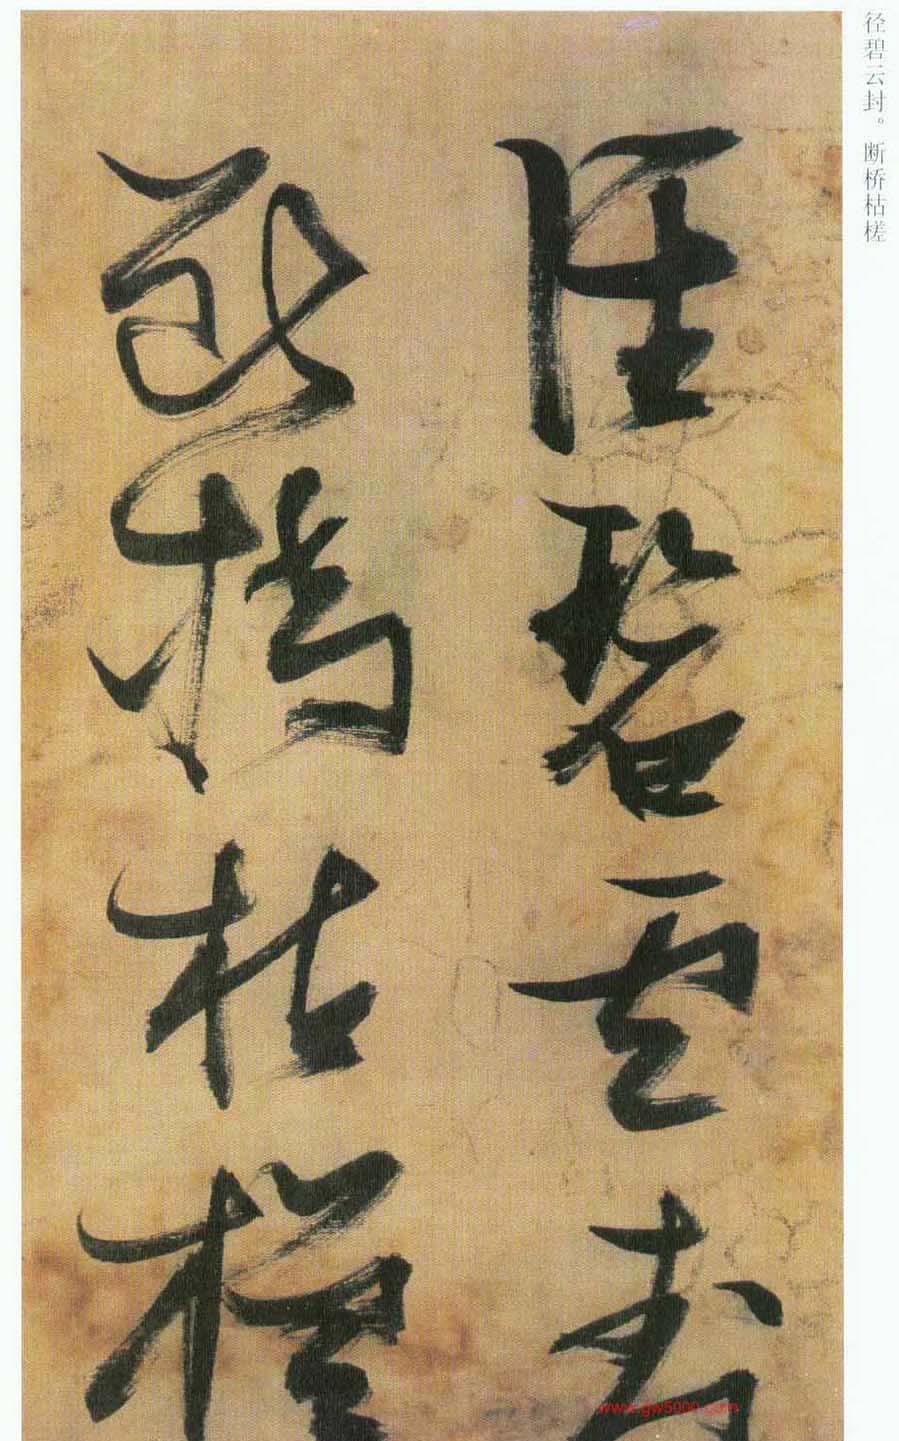 径碧云封。断桥枯槎
径碧雲封
斷橋枯槎
www.gw5000.com